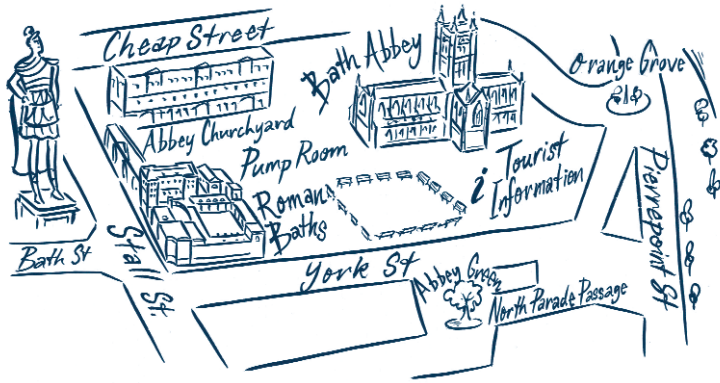 Cheap Street
Bath Abbey
Orange Grove
Abbey Churchyard
Pump Room
Roman
Baths
i Tourist
Information
Pierrepoint St
Bath St
Stall St.
York St
Abbey Green
North Parade Passage